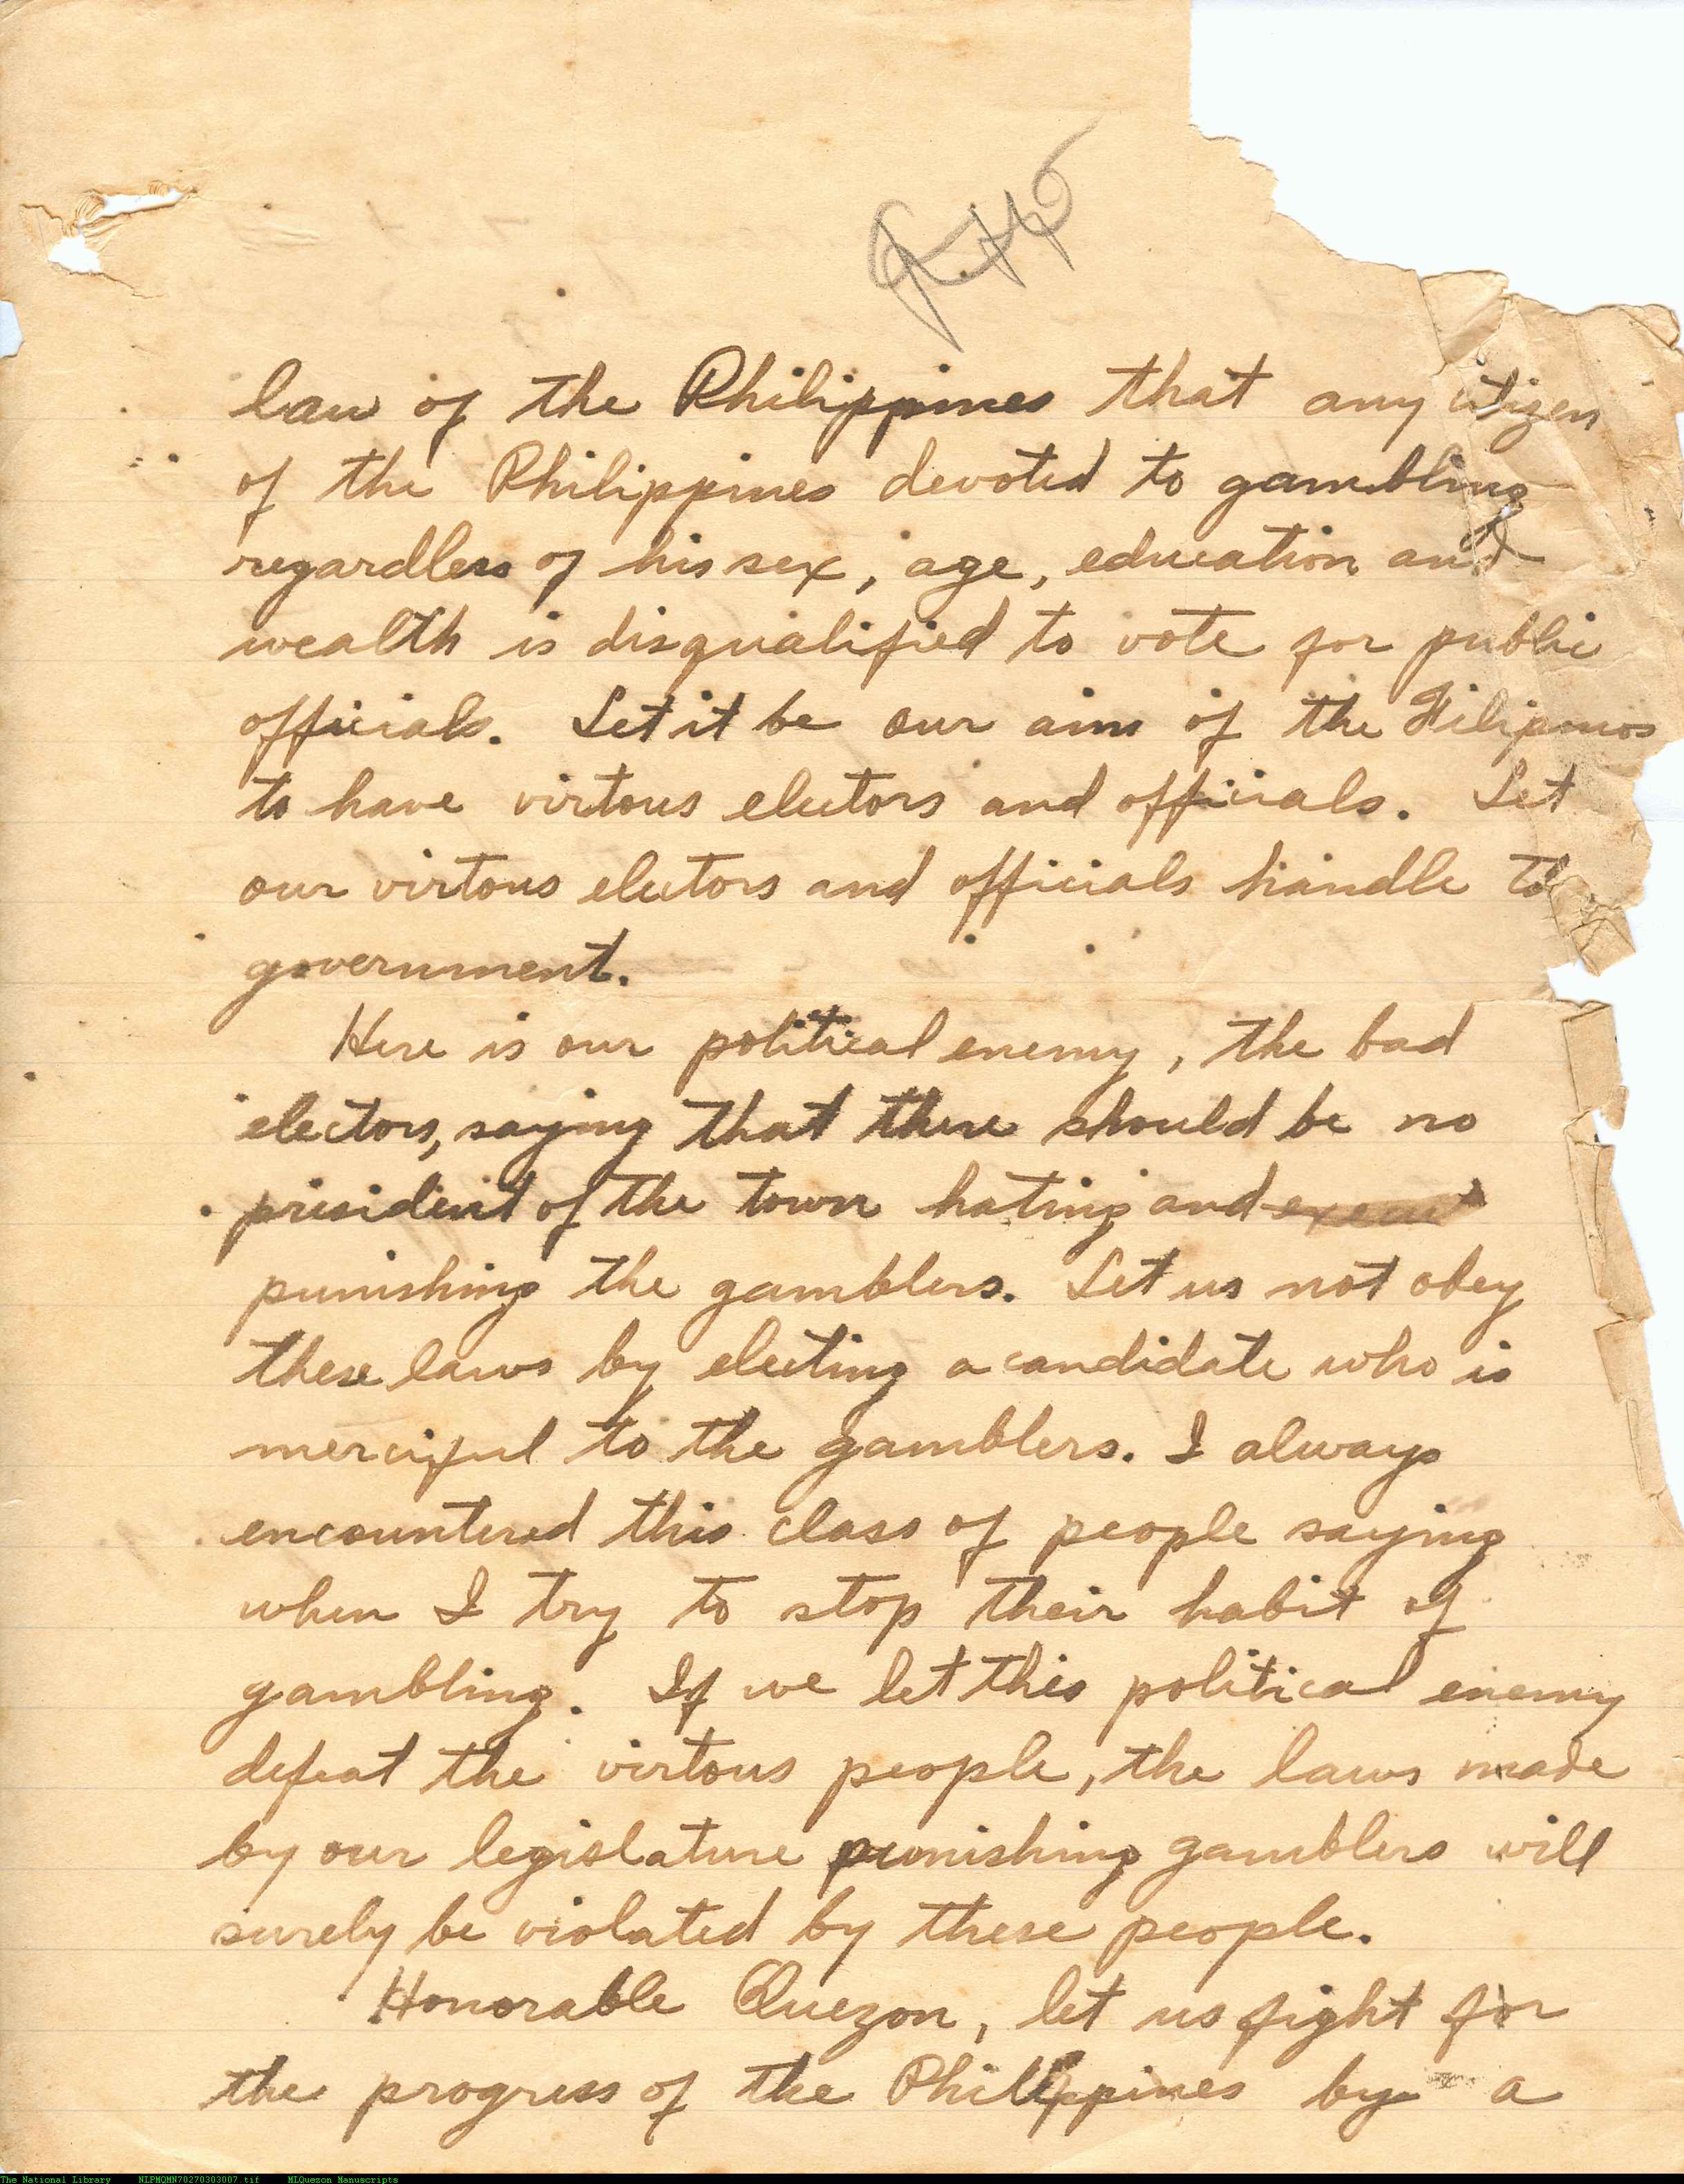 law of the Philippines that any citizen
of the Philippines devoted to gambling
regardless of his sex, age, education and
wealth is disqualified to vote for public
officials. Let it be our aim of the Filipinos
to have virtous electors and officials. Let
our virtous electors and officials handle the
government.
Here is our political enemy, the bad
electors, saying that there should be no
president of the town hating and
punishing the gamblers. Let us not obey
these laws by electing a candidate who is
merciful to the gamblers. I always
encountered this class of people saying
when I try to stop their habit of
gambling. If we let this political enemy
defeat the virtous people, the laws made
by our legislature punishing gamblers will
surely be violated by these people.
Honorable Quezon, let us fight for
the progress of the Philippines by a
The National Library NLPMQMN70270303007.tif MLQuezon Manuscripts